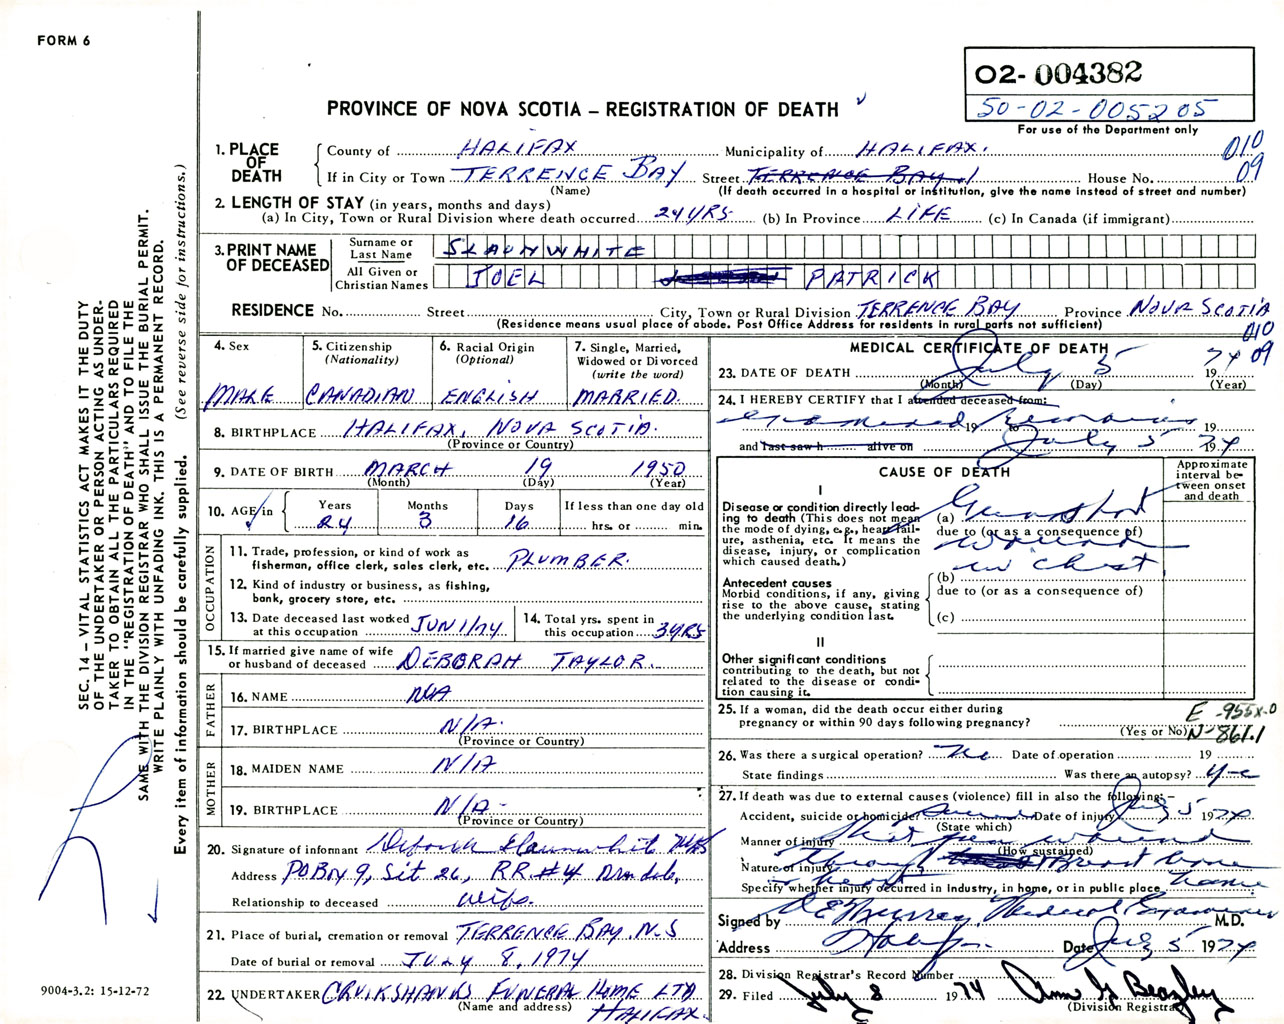 FORM 6
02-004382
50-02-005205
For use of the Department only
PROVINCE OF NOVA SCOTIA – REGISTRATION OF DEATH
1. PLACE OF DEATH
County of HALIFAX Municipality of HALIFAX. 010
If in City or Town TERRENCE BAY Street TERRENCE BAY House No. 09
(Name) (If death occurred in a hospital or institution, give the name instead of street and number)
2. LENGTH OF STAY (in years, months and days)
(a) In City, Town or Rural Division where death occurred 24 YRS (b) In Province LIFE (c) In Canada (if immigrant)
3. PRINT NAME OF DECEASED
Surname or Last Name SLAUNWHITE
All Given or Christian Names JOEL PATRICK
RESIDENCE No. Street City, Town or Rural Division TERRENCE BAY Province NOVA SCOTIA
(Residence means usual place of abode. Post Office Address for residents in rural parts not sufficient) 010
09
4. Sex MALE
5. Citizenship (Nationality) CANADIAN
6. Racial Origin (Optional) ENGLISH
7. Single, Married, Widowed or Divorced (write the word) MARRIED.
8. BIRTHPLACE HALIFAX, NOVA SCOTIA.
(Province or Country)
9. DATE OF BIRTH MARCH 19 1950
(Month) (Day) (Year)
10. AGE in Years 24 Months 3 Days 16 If less than one day old hrs. or min.
OCCUPATION
11. Trade, profession, or kind of work as fisherman, office clerk, sales clerk, etc. PLUMBER.
12. Kind of industry or business, as fishing, bank, grocery store, etc.
13. Date deceased last worked at this occupation JUN 1/74
14. Total yrs. spent in this occupation 3 YRS
15. If married give name of wife or husband of deceased DEBORAH TAYLOR.
FATHER
16. NAME N/A
17. BIRTHPLACE N/A.
(Province or Country)
MOTHER
18. MAIDEN NAME N/A
19. BIRTHPLACE N/A.
(Province or Country)
20. Signature of informant Deborah Slaunwhite
Address PO Box 9, Sit 26, RR #4
Relationship to deceased wife.
21. Place of burial, cremation or removal TERRENCE BAY N.S
Date of burial or removal JULY 8, 1974
22. UNDERTAKER CRUIKSHANKS FUNERAL HOME LTD
(Name and address) HALIFAX.
MEDICAL CERTIFICATE OF DEATH
23. DATE OF DEATH July 5 1974
(Month) (Day) (Year)
24. I HEREBY CERTIFY that I attended deceased from:
Examined Remains 19 19
and last saw h alive on July 5 1974
CAUSE OF DEATH
Approximate interval between onset and death
I
Disease or condition directly leading to death (This does not mean the mode of dying, e.g., heart failure, asthenia, etc. It means the disease, injury, or complication which caused death.)
(a) Gunshot
due to (or as a consequence of)
wound
in chest
Antecedent causes
Morbid conditions, if any, giving rise to the above cause, stating the underlying condition last.
(b)
due to (or as a consequence of)
(c)
II
Other significant conditions
contributing to the death, but not related to the disease or condition causing it.
25. If a woman, did the death occur either during pregnancy or within 90 days following pregnancy?
(Yes or No)
E-955X.0
N-861.1
26. Was there a surgical operation? no Date of operation 19
State findings Was there an autopsy? yes
27. If death was due to external causes (violence) fill in also the following:–
Accident, suicide or homicide? Date of injury July 5 1974
(State which)
Manner of injury Shot gun wound
(How sustained)
Nature of injury through Breast bone
heart
Specify whether injury occurred in Industry, in home, or in public place home
Signed by Murray Medical Examiner M.D.
Address Halifax. Date July 5 1974
28. Division Registrar's Record Number
29. Filed July 8 1974 Ann G Beazley
(Division Registrar)
SEC. 14 – VITAL STATISTICS ACT MAKES IT THE DUTY
OF THE UNDERTAKER OR PERSON ACTING AS UNDER-
TAKER TO OBTAIN ALL THE PARTICULARS REQUIRED
IN THE "REGISTRATION OF DEATH" AND TO FILE THE
SAME WITH THE DIVISION REGISTRAR WHO SHALL ISSUE THE BURIAL PERMIT.
WRITE PLAINLY WITH UNFADING INK. THIS IS A PERMANENT RECORD.
Every item of information should be carefully supplied. (See reverse side for instructions.)
9004-3.2: 15-12-72